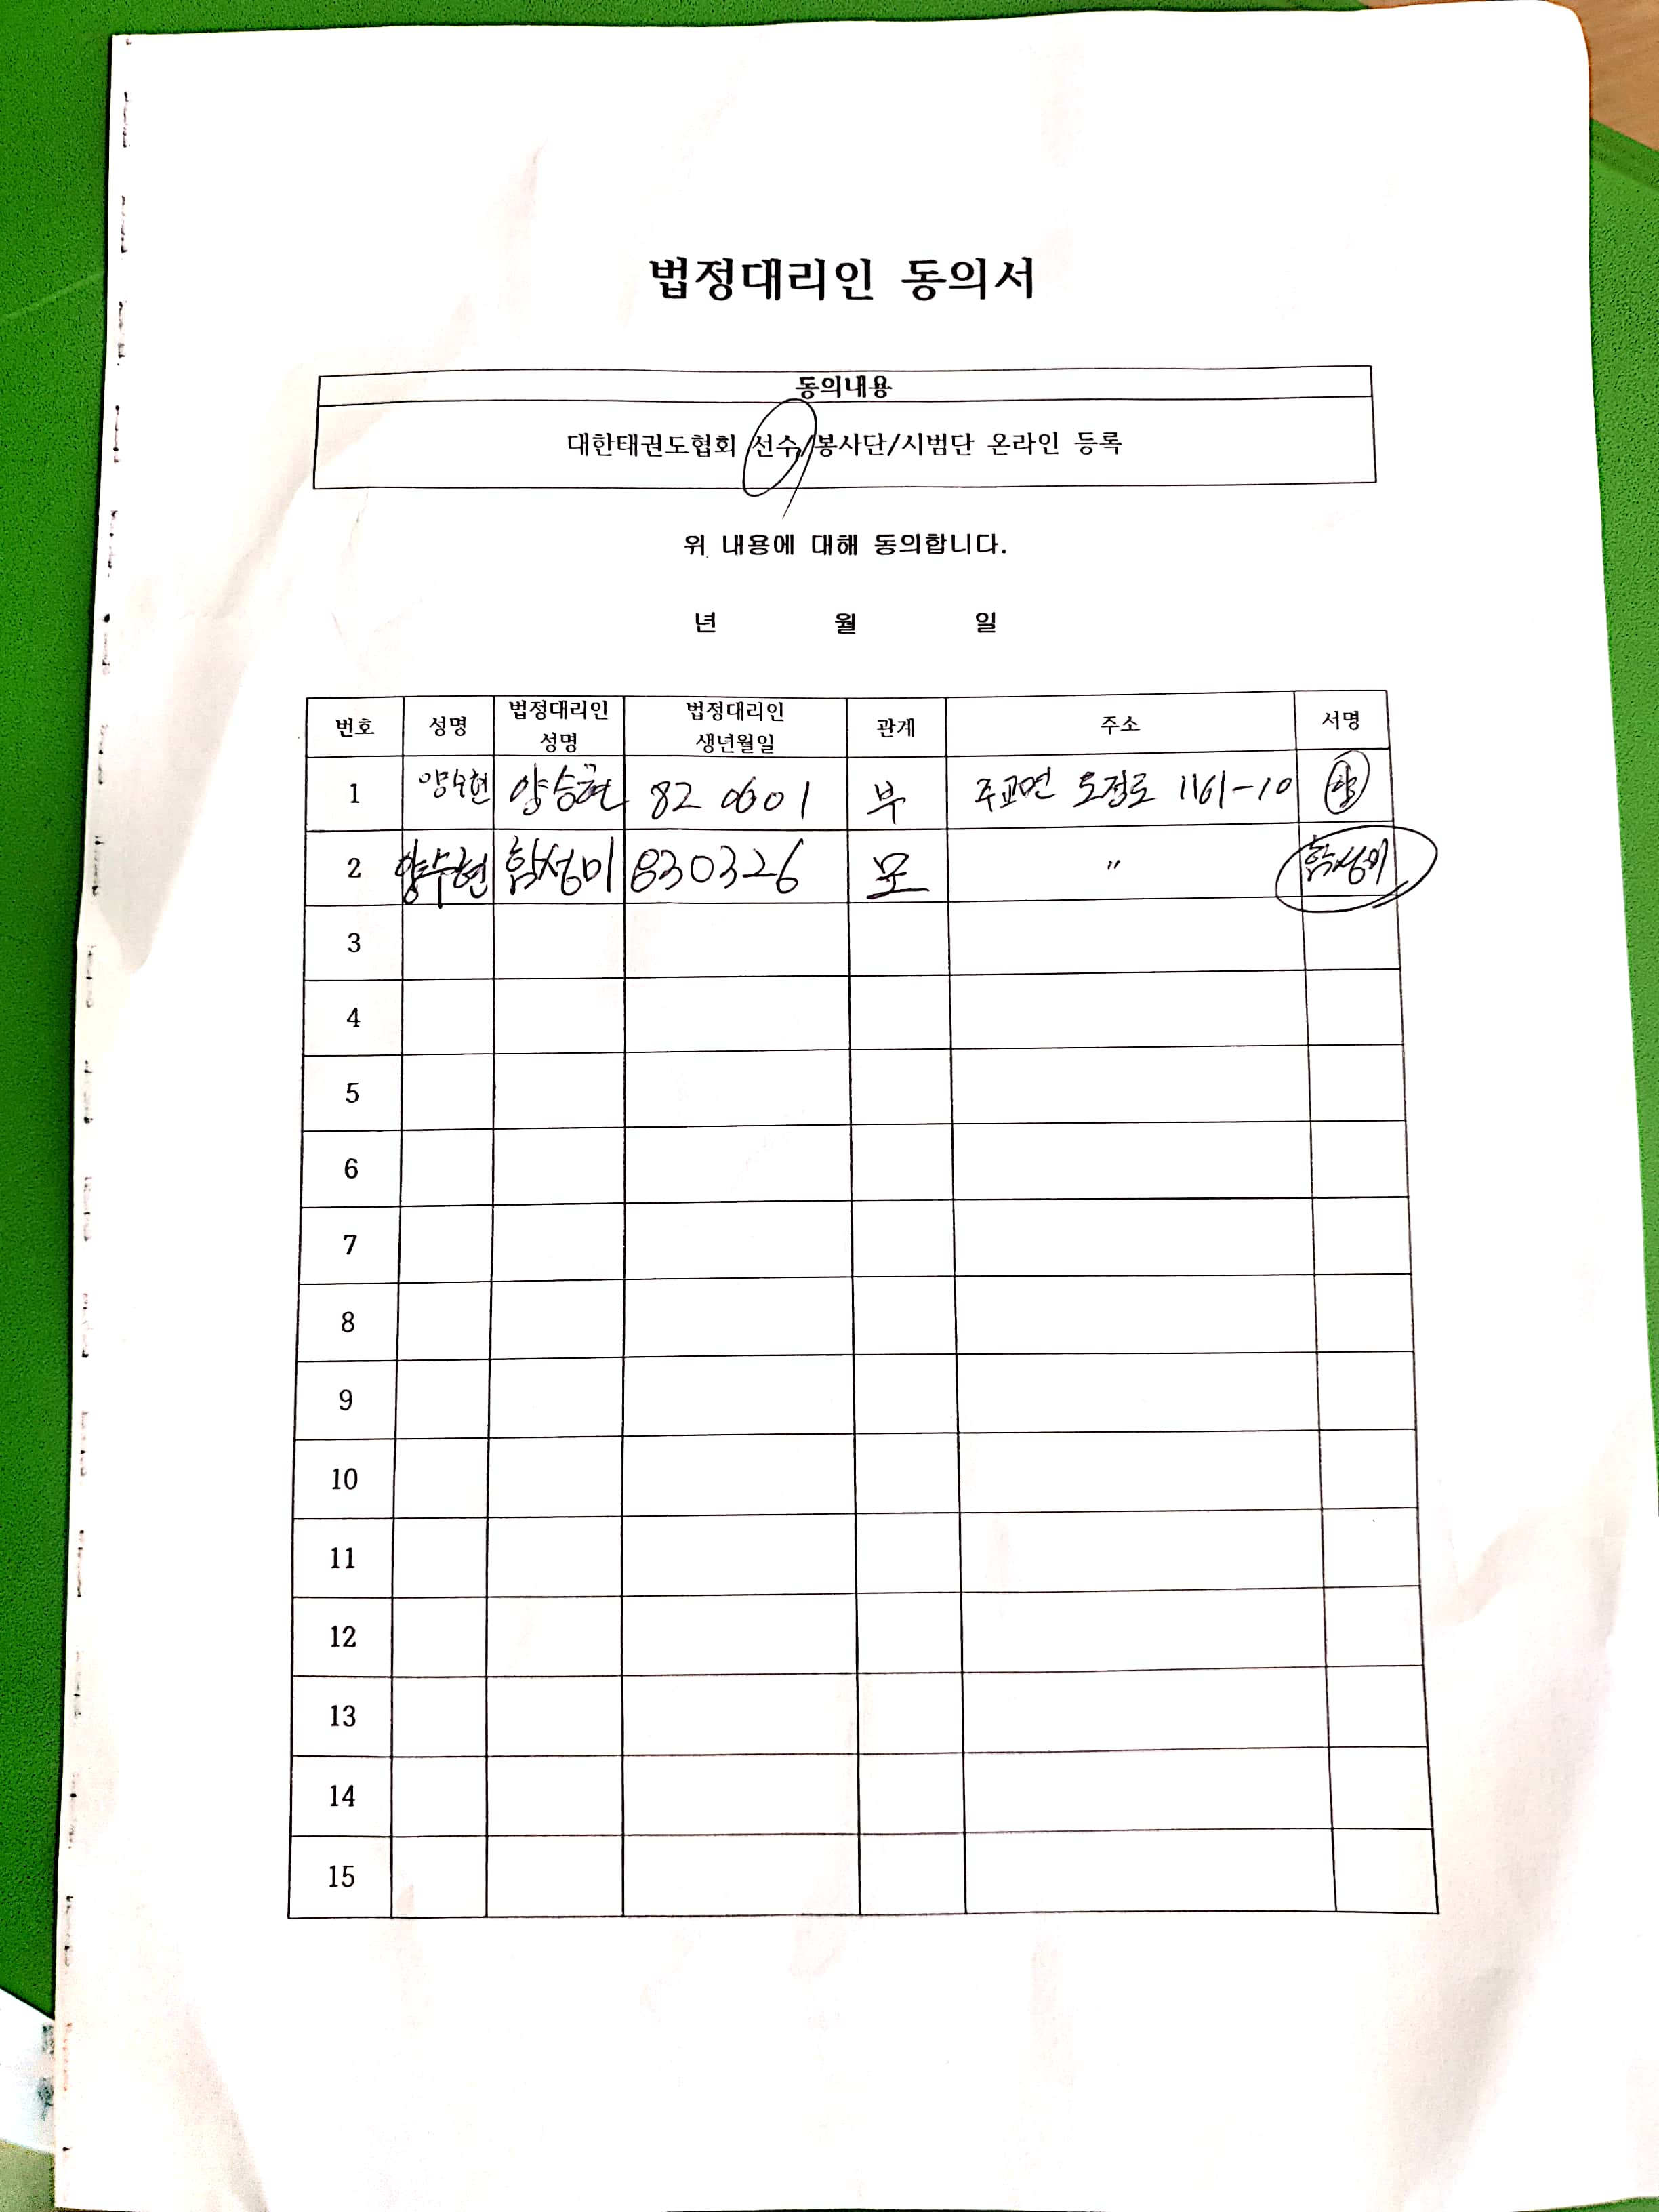 법정대리인 동의서
동의내용
대한태권도협회 선수/봉사단/시범단 온라인 등록
위 내용에 대해 동의합니다.
년 월 일
번호 성명 법정대리인 성명 법정대리인 생년월일 관계 주소 서명
1 양수현 양승현 82 0601 부 주교면 토정로 1161-10 양
2 양수현 함성미 830326 모 〃 함성미
3
4
5
6
7
8
9
10
11
12
13
14
15